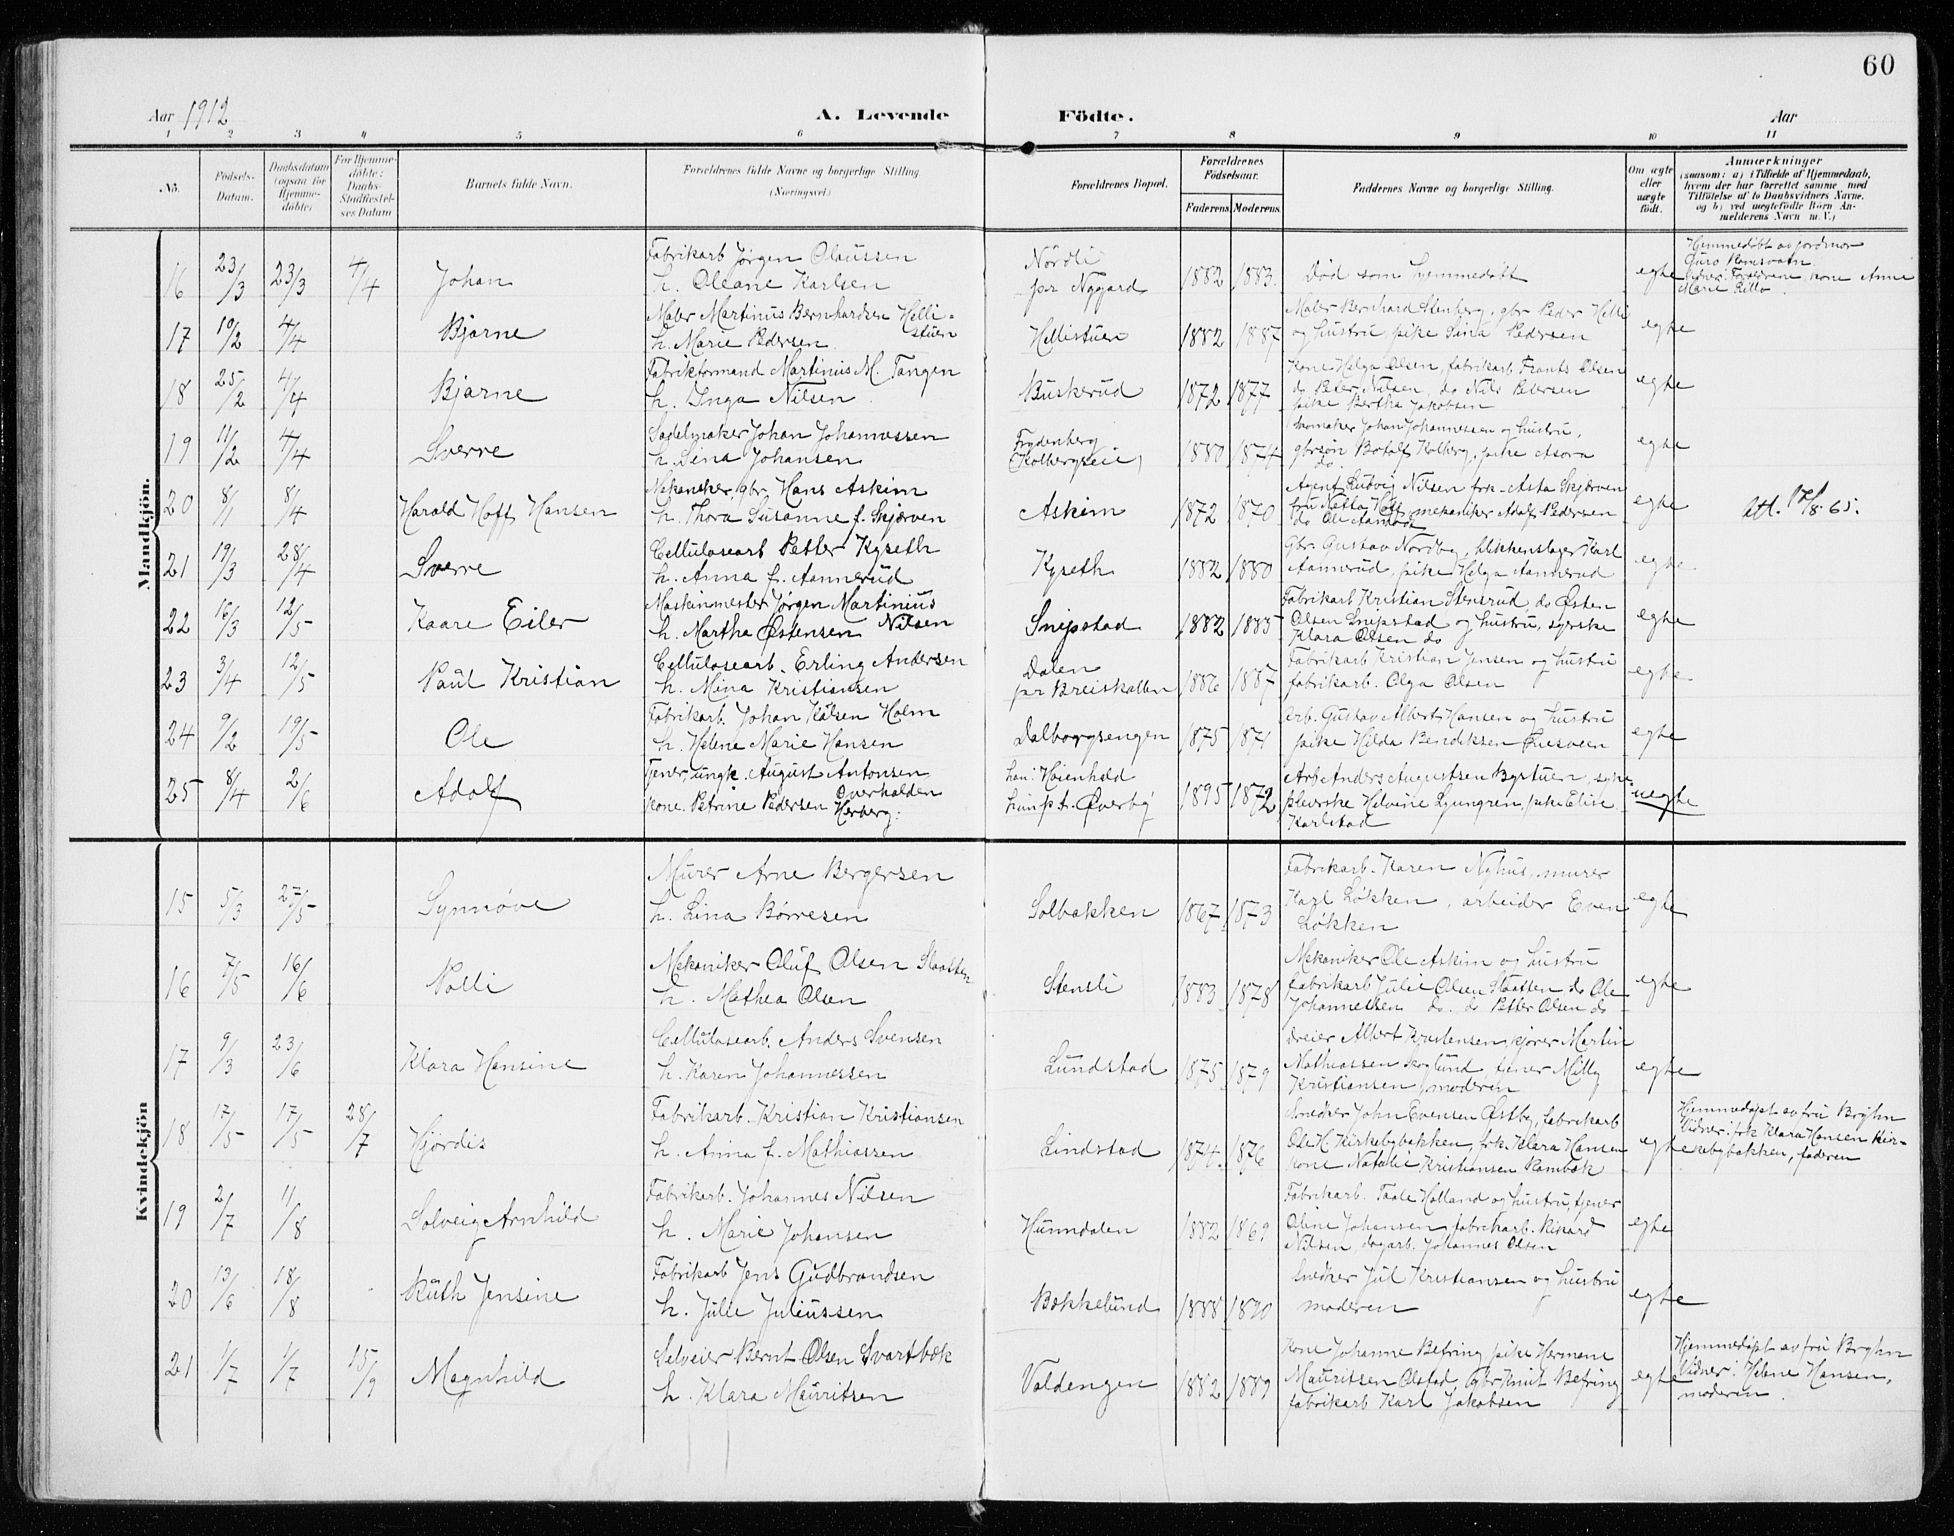 60
Aar 1912
A. Levende Födte.
Aar
1 2 3 4 5 6 7 8 9 10 11
No.
Födsels-Datum.
Daabsdatum (ogsaa for Hjemme-döbte)
For Hjemme-döbte: Daabs-Stadfæstel-ses Datum
Barnets fulde Navn.
Forældrenes fulde Navne og borgerlige Stilling. (Næringsvei.)
Forældrenes Bopæl.
Forældrenes Födselsaar.
Faderens. Moderens.
Faddernes Navne og borgerlige Stilling.
Om ægte eller uægte födt.
Anmærkninger
(saasom: a) i Tilfælde af Hjemmedaab, hvem der har forrettet samme med Tilföielse af to Daabsvidners Navne, og b) ved uægtefödte Börn An-melderens Navn m. V.)
Mandkjön.
16 23/3 23/3 4/4 Johan
Fabrikarb Jørgen Olaussen
h. Oleane Karlsen
Nordli
pr Nygard
1882 1883. Død som hjemmedøbt egte
Hjemmedøbt av jordmor
Guro
Marie
17 10/2 4/4 Bjarne
Maler Martinus Bernhardsen Helli-stuen
h. Marie Pedersen.
Hellistuen 1882 1887
Maler Bernhard Stenberg, gbr Peder Helli
og hustru, pike Lina Pedersen
egte
18 25/2 4/4 Bjarne
Fabrikformand Martinus M. Tangen
h. Inga Nilsen.
Buskerud 1872 1877
Kone Helga Olsen, fabrikarb. Frants Olsen
do Peter Nilsen, do Nils Pedersen
pike Bertha Jakobsen
egte
19 11/2 4/4 Sverre
Sadelmaker Johan Johannessen
h. Lina Johansen
Frydenberg
Kolbergseie
1880 1874
Skomaker Johan Johannessen og hustru,
gbrsøn Botolf Kolberg, pike Asora
do.
egte
20 8/1 8/4 Harald Hoff Hansen
Mekaniker, gbr. Hans Askim
h. Thora Susanne f. Skjerven
Askim 1872 1870
Agent Ludvig Nilsen frk. Asta Skjerven
fru Netta Hoff, mekaniker Adolf Pedersen
do Ole Aamodt
egte
Att. 17/8.65.
21 19/3 28/4 Sverre
Cellulosearb Petter Kyseth
h. Anna f. Aannerud
Kyseth 1882 1880
Gbr. Gustav Nordby, blikkenslager Karl
Aannerud, pike Helga Aannerud
egte
22 16/3 12/5 Kaare Eiler
Maskinmester Jørgen Martinius Nilsen
h. Martha Østensen
Snipstad 1882 1885
Fabrikarb Kristian Stensrud, do Østen
Olsen Snipstad og hustru, syerske
Klara Olsen do
egte
23 3/4 12/5 Paul Kristian
Cellulosearb. Erling Andersen
h. Mina Kristiansen
Dalen
pr Breiskallen
1886 1887
Fabrikarb Kristian Jensen og hustru
fabrikarb. Olga Olsen
egte
24 9/2 19/5 Ole
Fabrikarb. Johan Kålsen Holm
h. Helene Marie Hansen
Dalborgsengen 1875 1871
Arb. Gustav Albert Hansen og hustru
pike Hilda Bendiksen
egte
25 8/4 2/6 Adolf
Tjener, ungk. August Antonsen Overhalden
kone. Petrine Pedersen Herberg:
han: Høienhald
hun pt. Øverby
1895 1872
Arb Anders Augustsen Bystuen, syge-
pleierske Helvine Ljungren, pike Elise
Karlstad
uegte
Kvindekjön
15 5/3 27/5 Synnøve
Murer Arne Bergersen
h. Lina Børresen
Solbakken 1867 1873
Fabrikarb. Karen Nyhus, murer
Karl Løkken, arbeider Even
Løkken
egte
16 7/5 16/6 Nolli
Mekaniker Oluf Olsen Slaatten
h. Mathea Olsen
Stenli 1883 1878
Mekaniker Ole Askim og hustru
fabrikarb Julie Olsen Slaatten do Ole
Johannessen do. do Petter Olsen do
egte
17 9/3 23/6 Klara Hansine
Cellulosearb. Anders Svensen
h. Karen Johannessen
Lundstad 1875 1879
Dreier Albert Kristensen, kjører Martin
Mathiassen Skoglund, tjener Milly
Kristiansen, moderen
egte
18 17/5 17/5 28/7 Hjørdis
Fabrikarb. Kristian Kristiansen
h. Anna f. Mathiassen
Lindstad 1874. 1876
Snedker John Evensen Østby, fabrikarb
Ole H Kirkebybakken, frk. Klara Hansen
kone Natalie Kristiansen Rambæk
egte
Hjemmedøpt av fru Bryhn
Vidner: frk Klara Hansen Kir-
kebybakken, faderen
19 2/7 11/8 Solveig Arnhild
Fabrikarb. Johannes Nilsen
h. Marie Johansen
Hunndalen 1882 1869
Fabrikarb. Taale Holland og hustru, tjener
Oline Johansen, fabrikarb. Rikard
Nilsen, dagarb. Johannes Olsen
egte
20 13/6 18/8 Ruth Jensine
Fabrikarb Jens Gudbrandsen
h. Julie Juliussen
Bakkelund 1888 1890
Snedker Jul Kristiansen og hustru
moderen
egte
21 1/7 1/7 15/9 Magnhild
Selveier Bernt Olsen Svartbæk
h. Klara Mauritsen
Valdengen 1882 1889
Kone Johanne Betring pike Hermene
Mauritsen Olstad, gbr Knut Betring
fabrikarb Karl Jakobsen
egte
Hjemmedøpt av fru Bryhn
Vidner: Helene Hansen,
moderen.